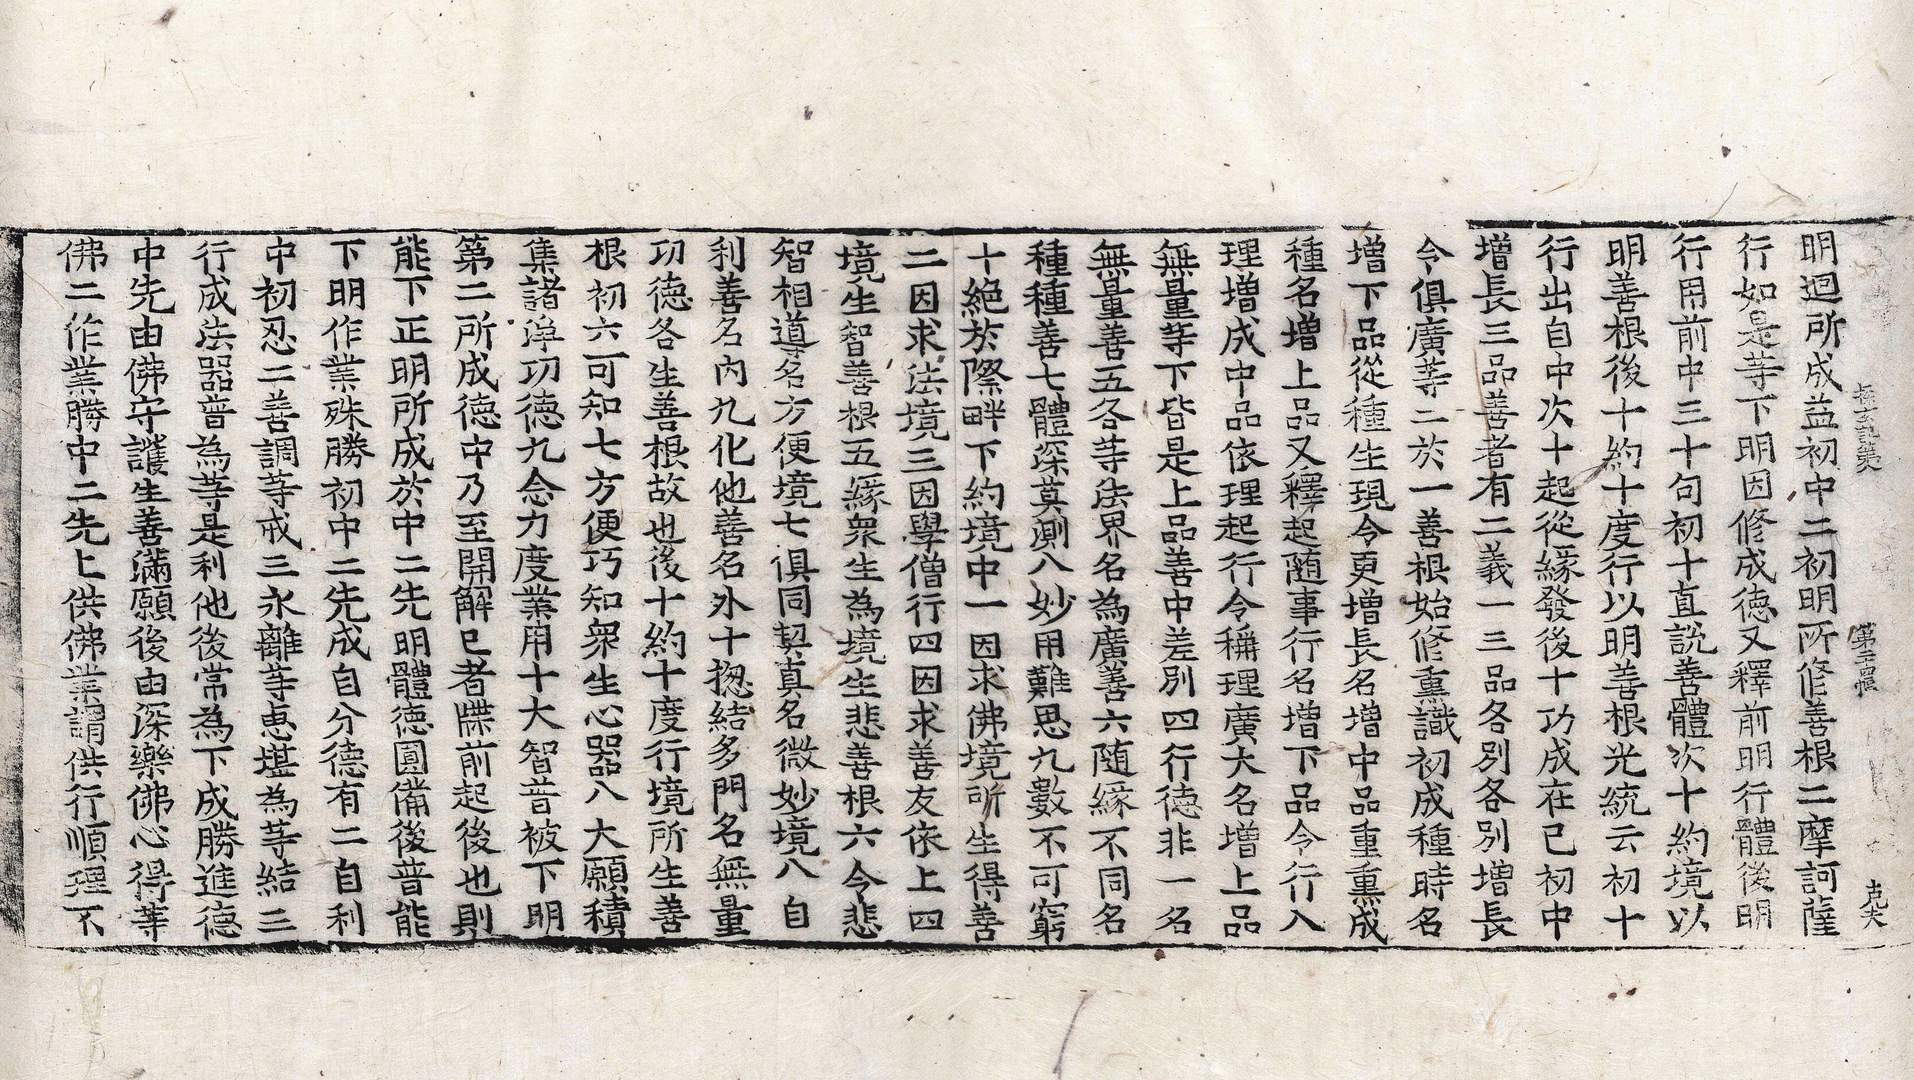 明迴所成益初中二初明所修善根二摩訶薩
行如是等下明因修成德又釋前明行體後明
行用前中三十句初十直說善體次十約境以
明善根後十約十度行以明善根光統云初十
行出自中次十起從緣發後十功成在已初中
增長三品善者有二義一三品各別各別增長
今俱廣等二於一善根始修熏識初成種時名
增下品從種生現令更增長名增中品重熏成
種名增上品又釋起隨事行名增下品令行入
理增成中品依理起行令稱理廣大名增上品
無量等下皆是上品善中差別四行德非一名
無量善五各等法界名為廣善六隨緣不同名
種種善七體深莫測八妙用難思九數不可窮
十絶於際畔下約境中一因求佛境所生得善
二因求法境三因學僧行四因求善友依上四
境生智善根五緣衆生為境生悲善根六令悲
智相導名方便境七俱同契真名微妙境八自
利善名內九化他善名外十揔結多門名無量
功德各生善根故也後十約十度行境所生善
根初六可知七方便巧知衆生心器八大願積
集諸淨功德九念力度業用十大智普被下明
第二所成德中乃至開解已者牒前起後也則
能下正明所成於中二先明體德圓備後普能
下明作業殊勝初中二先成自分德有二自利
中初忍二善調等戒三永離等惠堪為等結三
行成法器普為等是利他後常為下成勝進德
中先由佛守護生善滿願後由深樂佛心得等
佛二作業勝中二先上供佛業謂供行順理不